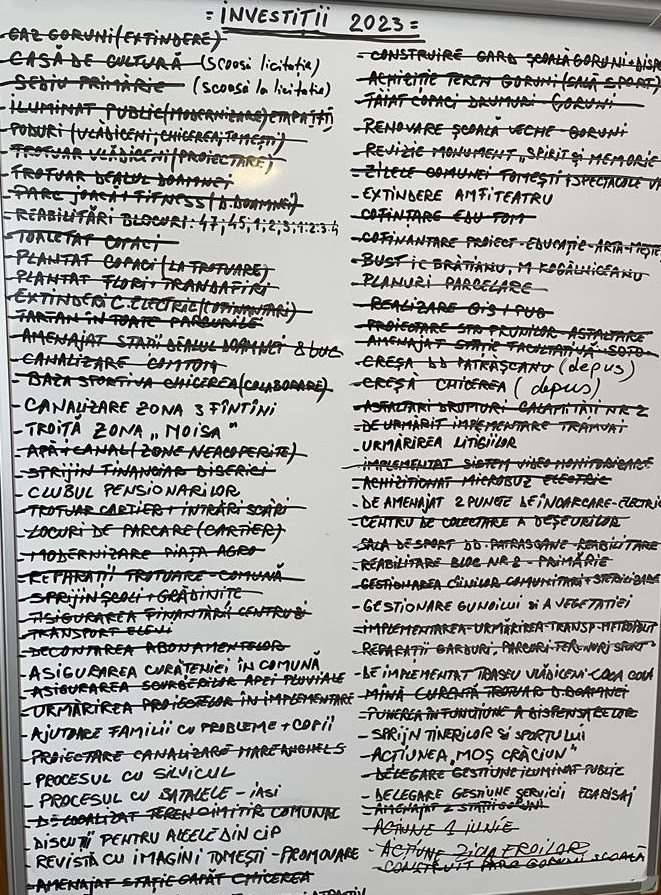 = INVESTIȚII 2023 =
- GAZ GORUNI (EXTINDERE)
- CASĂ DE CULTURĂ (scoasă licitație)
- SEDIU PRIMĂRIE (scoasă la licitație)
- ILUMINAT PUBLIC (MODERNIZARE) ETAPA III
- PODURI (VLĂDICENI, CHICEREA, TOMEȘTI)
- TROTUAR VLĂDICENI (PROIECTARE)
- TROTUAR DEALUL DOAMNEI
- PARC JOACĂ + FITNESS (D. DOAMNEI)
- REABILITĂRI BLOCURI: 47, 45,
- TOALETAT COPACI
- PLANTAT COPACI (LA TROTUARE)
- PLANTAT FLORI + TRANDAFIRI
- EXTINDERI C. ELECTRIC (COFINANȚARI)
- TARTAN ÎN TOATE PARCURILE
- AMENAJAT STAȚII DEALUL DOAMNEI
- CANALIZARE COMTOM
- BAZA SPORTIVA CHICEREA (COLABORARE)
- CANALIZARE ZONA 3 FÎNTÎNI
- TROIȚĂ ZONA „MOISA"
- APĂ + CANAL (ZONE NEACOPERITE)
- SPRIJIN FINANCIAR BISERICI
- CLUBUL PENSIONARILOR
- TROTUAR CARTIER + INTRĂRI SCĂRI
- LOCURI DE PARCARE (CARTIER)
- MODERNIZARE PIAȚA AGRO
- REPARAȚII TROTUARE - COMUNĂ
- SPRIJIN ȘCOLI + GRĂDINIȚE
- ASIGURAREA FINANȚĂRII CENTRU ZI
- TRANSPORT ELEVI
- DECONTAREA ABONAMENTELOR
- ASIGURAREA CURĂȚENIEI ÎN COMUNĂ
- ASIGURAREA SCURGERILOR APEI PLUVIALE
- URMĂRIREA PROIECTELOR ÎN IMPLEMENTARE
- AJUTARE FAMILII CU PROBLEME + COPII
- PROIECTARE CANALIZARE
- PROCESUL CU SILVICUL
- PROCESUL CU BATALELE - IASI
- TEREN CIMITIR COMUNAL
- DISCUȚII PENTRU ALEELE DIN CIP
- REVISTĂ CU IMAGINI TOMEȘTI - PROMOVARE
- AMENAJAT STAȚIE CAPĂT CHICEREA
- CONSTRUIRE GARD ȘCOALĂ GORUNI + DISP
- ACHIZIȚIE TEREN GORUNI (SALĂ SPORT)
- TĂIAT COPACI DRUMURI - GORUNI
- RENOVARE ȘCOALĂ VECHE GORUNI
- REVIZIE MONUMENT „SPIRIT ȘI MEMORIE
- ZILELE COMUNEI TOMEȘTI + SPECTACOLE
- EXTINDERE AMFITEATRU
- COFINȚARE EDU TOM
- COFINANTARE PROIECT - EDUCAȚIE - ARTA
- BUST IC BRĂTIANU, M KOGĂLNICEANU
- PLANURI PARCELARE
- REALIZARE GIS / PUG
- PROIECTARE STR PRUNILOR ASFALTARE
- AMENAJAT STAȚIE FACULTATIVĂ
- CREȘA DD PATRAȘCANU (depus)
- CREȘA CHICEREA (depus)
- ASFALTARI DRUMURI CALAMITĂȚI NR 2
- DE URMĂRIT IMPLEMENTARE TRAMVAI
- URMĂRIREA LITIGIILOR
- IMPLEMENTAT SISTEM VIDEO MONITORIZARE
- ACHIZIȚIONAT MICROBUZ ELECTRIC
- DE AMENAJAT 2 PUNCTE DE ÎNCARCARE - ELECTRIC
- CENTRU DE COLECTARE A DEȘEURILOR
- SALA DE SPORT DD. PATRASCANE - REABILITARE
- REABILITARE BLOC NR 2 - PRIMĂRIE
- GESTIONAREA CÎINILOR COMUNITARI + STERILIZARE
- GESTIONARE GUNOIULUI SI A VEGETATIEI
- IMPLEMENTAREA - URMĂRIREA - TRANSP - METROPOLIT
- REPARATII GARDURI, PARCURI TERENURI SPORT
- DE IMPLEMENTAT TRASEU VLĂDICENI - COCA COLA
- MÎNĂ CURENTĂ TROTUAR D. DOAMNEI
- PUNEREA ÎN FUNCȚIUNE A DISPENSARELOR
- SPRIJN TINERILOR SI SPORTULUI
- ACȚIUNEA „MOȘ CRĂCIUN"
- DELEGARE GESTIUNE ILUMINAT PUBLIC
- DELEGARE GESTIUNE SERVICII ECARISAJ
- AMENAJAT 2 STAȚII GORUNI
- ACȚIUNE 1 IUNIE
- ACȚIUNE ZIUA EROILOR
- CONSTRUIT PARC GORUNI SCOALĂ